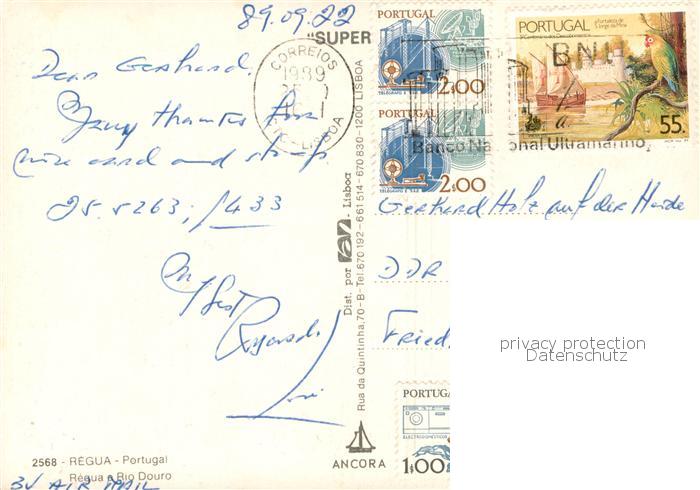 89.09.22
"SUPER
Dear Gerhard.
Many thanks for
nice card and stamp
My best
Regards
2568 - RÉGUA - Portugal
Régua e Rio Douro
BY AIR MAIL
CORREIOS
1989
LISBOA
Dist. por ran - Lisboa
Rua da Quintinha, 70-B-Tel. 670 192-661 514-670 830-1200 LISBOA
ANCORA
PORTUGAL
TELEGRAFO
2$00
PORTUGAL
TELEGRAFO
2$00
PORTUGAL
Fortaleza de
S. Jorge da Mina
55.
BNU
Banco Nacional Ultramarino
Gerhard Holz auf der Heide
DDR
Fried
privacy protection
Datenschutz
PORTUGA
ELECTRODOMÉSTICOS
1$00